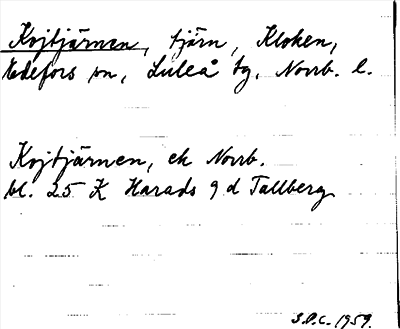 Kojtjärnen, tjärn, Kloken,
Edefors sn, Luleå tg, Norrb. l.
Kojtjärnen, ek Norrb.
bl. 25 K Harads 9 d Tallberg
S.O.C. 1959.